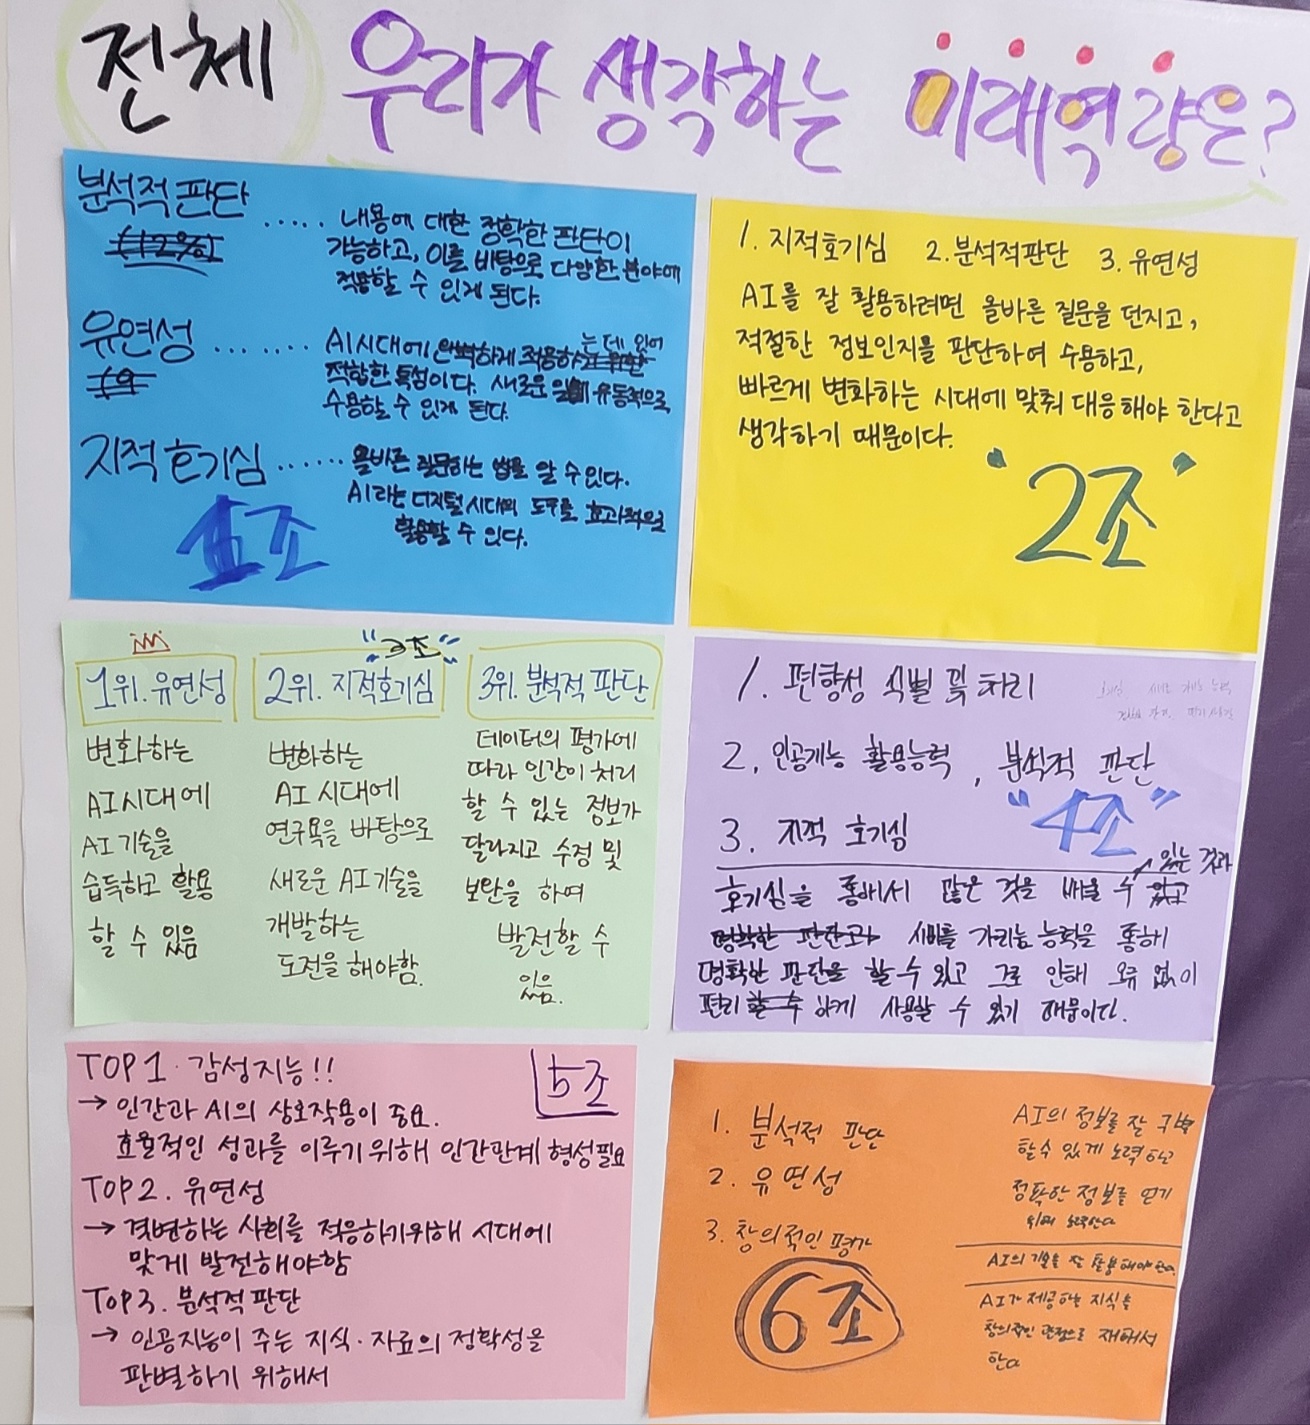 전체 우리가 생각하는 미래역량은?
분석적 판단
(12%)
내용에 대한 정확한 판단이
가능하고, 이를 바탕으로 다양한 분야에
적용할 수 있게 된다.
유연성
(9
는 데 있어
AI시대에 완벽하게 적용하기 위한
적합한 특성이다. 새로운 유동적으로
수용할 수 있게 된다.
지적 호기심
올바른 질문하는 법을 알 수 있다.
AI라는 디지털 시대의 도구를 효과적으로
활용할 수 있다.
1조
1. 지적호기심 2. 분석적판단 3. 유연성
AI를 잘 활용하려면 올바른 질문을 던지고,
적절한 정보인지를 판단하여 수용하고,
빠르게 변화하는 시대에 맞춰 대응해야 한다고
생각하기 때문이다.
"2조"
"3조"
1위. 유연성
변화하는
AI시대에
AI 기술을
습득하고 활용
할 수 있음
2위. 지적호기심
변화하는
AI 시대에
연구목을 바탕으로
새로운 AI기술을
개발하는
도전을 해야함.
3위. 분석적 판단
데이터의 평가에
따라 인간이 처리
할 수 있는 정보가
달라지고 수정 및
보완을 하여
발전할 수
있음.
1. 편향성 식별 및 처리
2. 인공기능 활용능력, 분석적 판단
3. 지적 호기심
"4조"
있는 것과
호기심을 통해서 많은 것을 배울 수 있고
명확한 판단과 시비를 가리는 능력을 통해
명확한 판단을 할 수 있고 그로 인해 오류 없이
편리 할 수 하게 사용할 수 있기 때문이다.
5조
TOP1. 감성지능!!
→ 인간과 AI의 상호작용이 중요.
효율적인 성과를 이루기 위해 인간관계 형성필요
TOP2. 유연성
→ 격변하는 사회를 적응하기위해 시대에
맞게 발전해야함
TOP3. 분석적 판단
→ 인공지능이 주는 지식·자료의 정확성을
판별하기 위해서
1. 분석적 판단
2. 유연성
3. 창의적인 평가
6조
AI의 정보를 잘 구별
할수 있게 노력하고
정확한 정보를 얻기
위해 노력한다
AI의 기술을 잘 활용해야 한다.
AI가 제공하는 지식을
창의적인 관점으로 재해석
한다